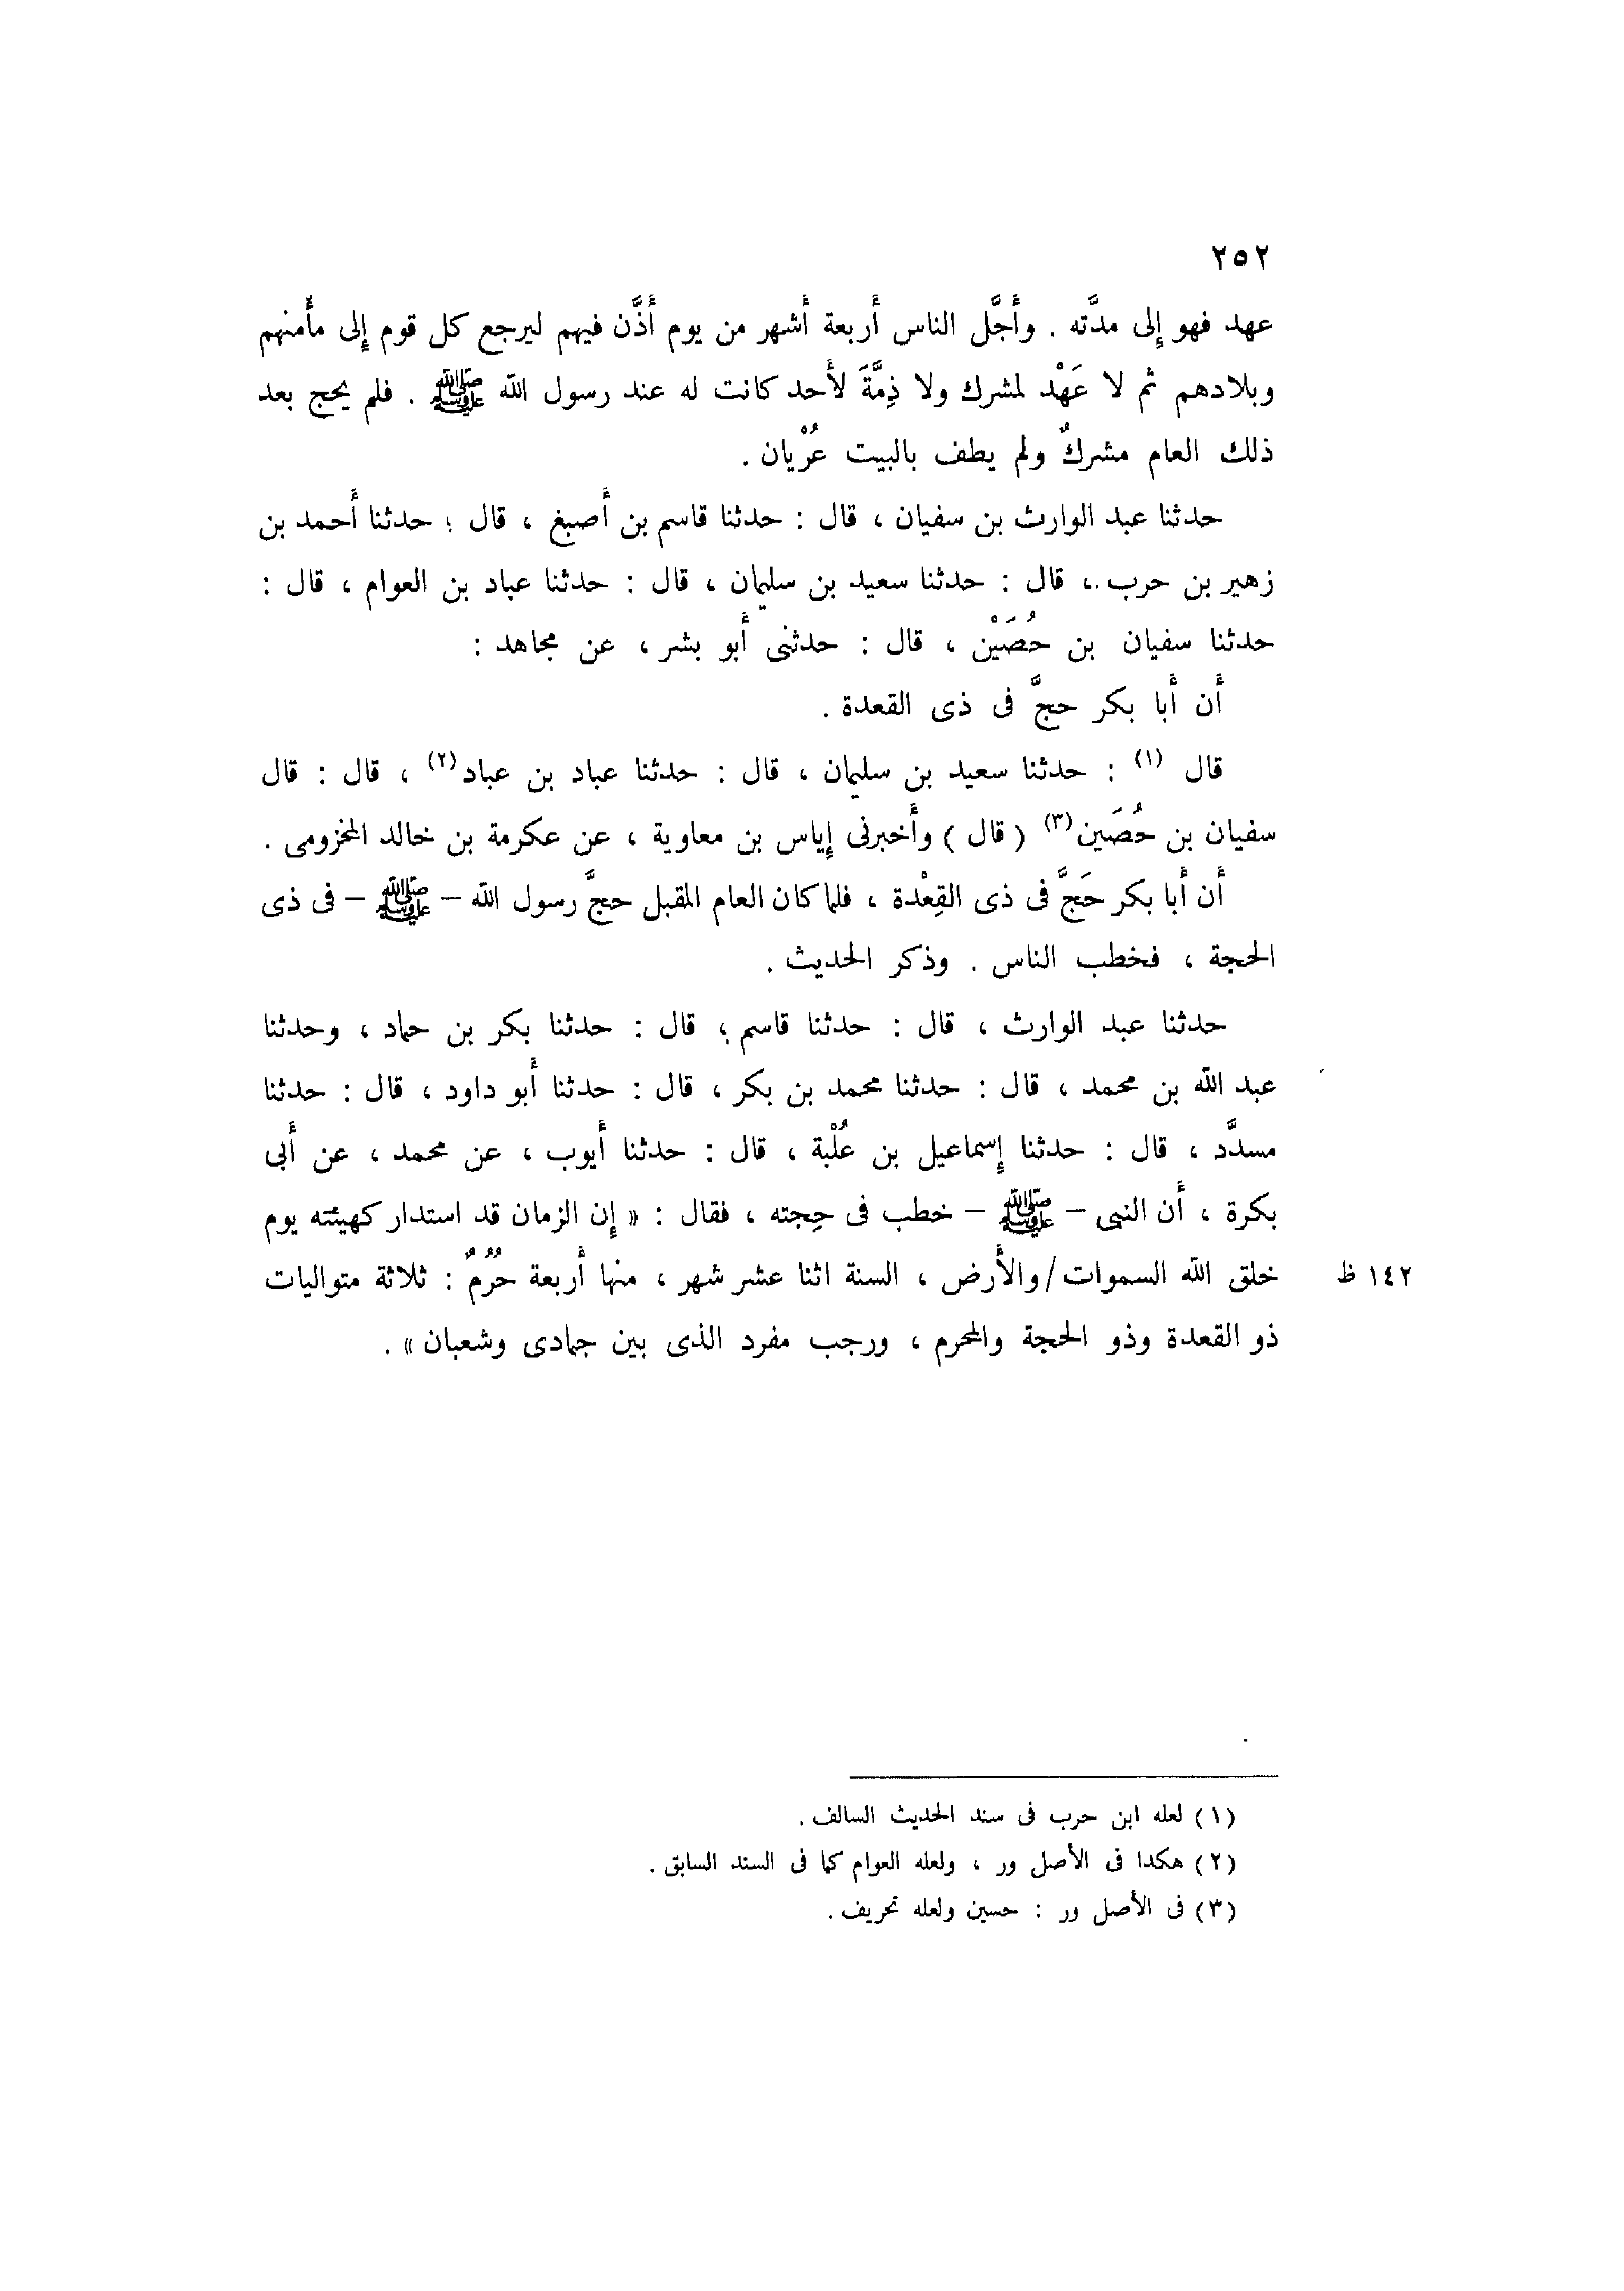 ٢٥٢
عهد فهو إلى مدَّته . وأَجَّل الناس أَربعة أَشهر من يوم أَذَّن فيهم ليرجع كل قوم إلى مأْمنهم
وبلادهم ثم لا عَهْد لمشرك ولا ذِمَّةَ لأَحد كانت له عند رسول الله ﷺ . فلم يحج بعد
ذلك العام مشركٌ ولم يطف بالبيت عُرْيان .
حدثنا عبد الوارث بن سفيان ، قال : حدثنا قاسم بن أَصبغ ، قال : حدثنا أَحمد بن
زهير بن حرب ، قال : حدثنا سعيد بن سليمان ، قال : حدثنا عباد بن العوام ، قال :
حدثنا سفيان بن حُصَيْن ، قال : حدثنى أَبو بشر ، عن مجاهد :
أَن أَبا بكر حجَّ فى ذى القعدة .
قال (١) : حدثنا سعيد بن سليمان ، قال : حدثنا عباد بن عباد (٢) ، قال : قال
سفيان بن حُصَين (٣) ( قال ) وأَخبرنى إياس بن معاوية ، عن عكرمة بن خالد المخزومى .
أَن أَبا بكر حَجَّ فى ذى القِعْدة ، فلما كان العام المقبل حجَّ رسول الله – ﷺ – فى ذى
الحجة ، فخطب الناس . وذكر الحديث .
حدثنا عبد الوارث ، قال : حدثنا قاسم ، قال : حدثنا بكر بن حماد ، وحدثنا
عبد الله بن محمد ، قال : حدثنا محمد بن بكر ، قال : حدثنا أَبو داود ، قال : حدثنا
مسدَّد ، قال : حدثنا إسماعيل بن عُلْبة ، قال : حدثنا أَيوب ، عن محمد ، عن أَبى
بكرة ، أَن النبى – ﷺ – خطب فى حِجته ، فقال : « إن الزمان قد استدار كهيئته يوم
خلق الله السموات / والأَرض ، السنة اثنا عشر شهر ، منها أَربعة حُرُمٌ : ثلاثة متواليات
١٤٢ ظ
ذو القعدة وذو الحجة والمحرم ، ورجب مفرد الذى بين جمادى وشعبان » .
(١) لعله ابن حرب فى سند الحديث السالف .
(٢) هكدا فى الأصل ور ، ولعله العوام كما فى السند السابق .
(٣) فى الأصل ور : حسين ولعله تحريف .